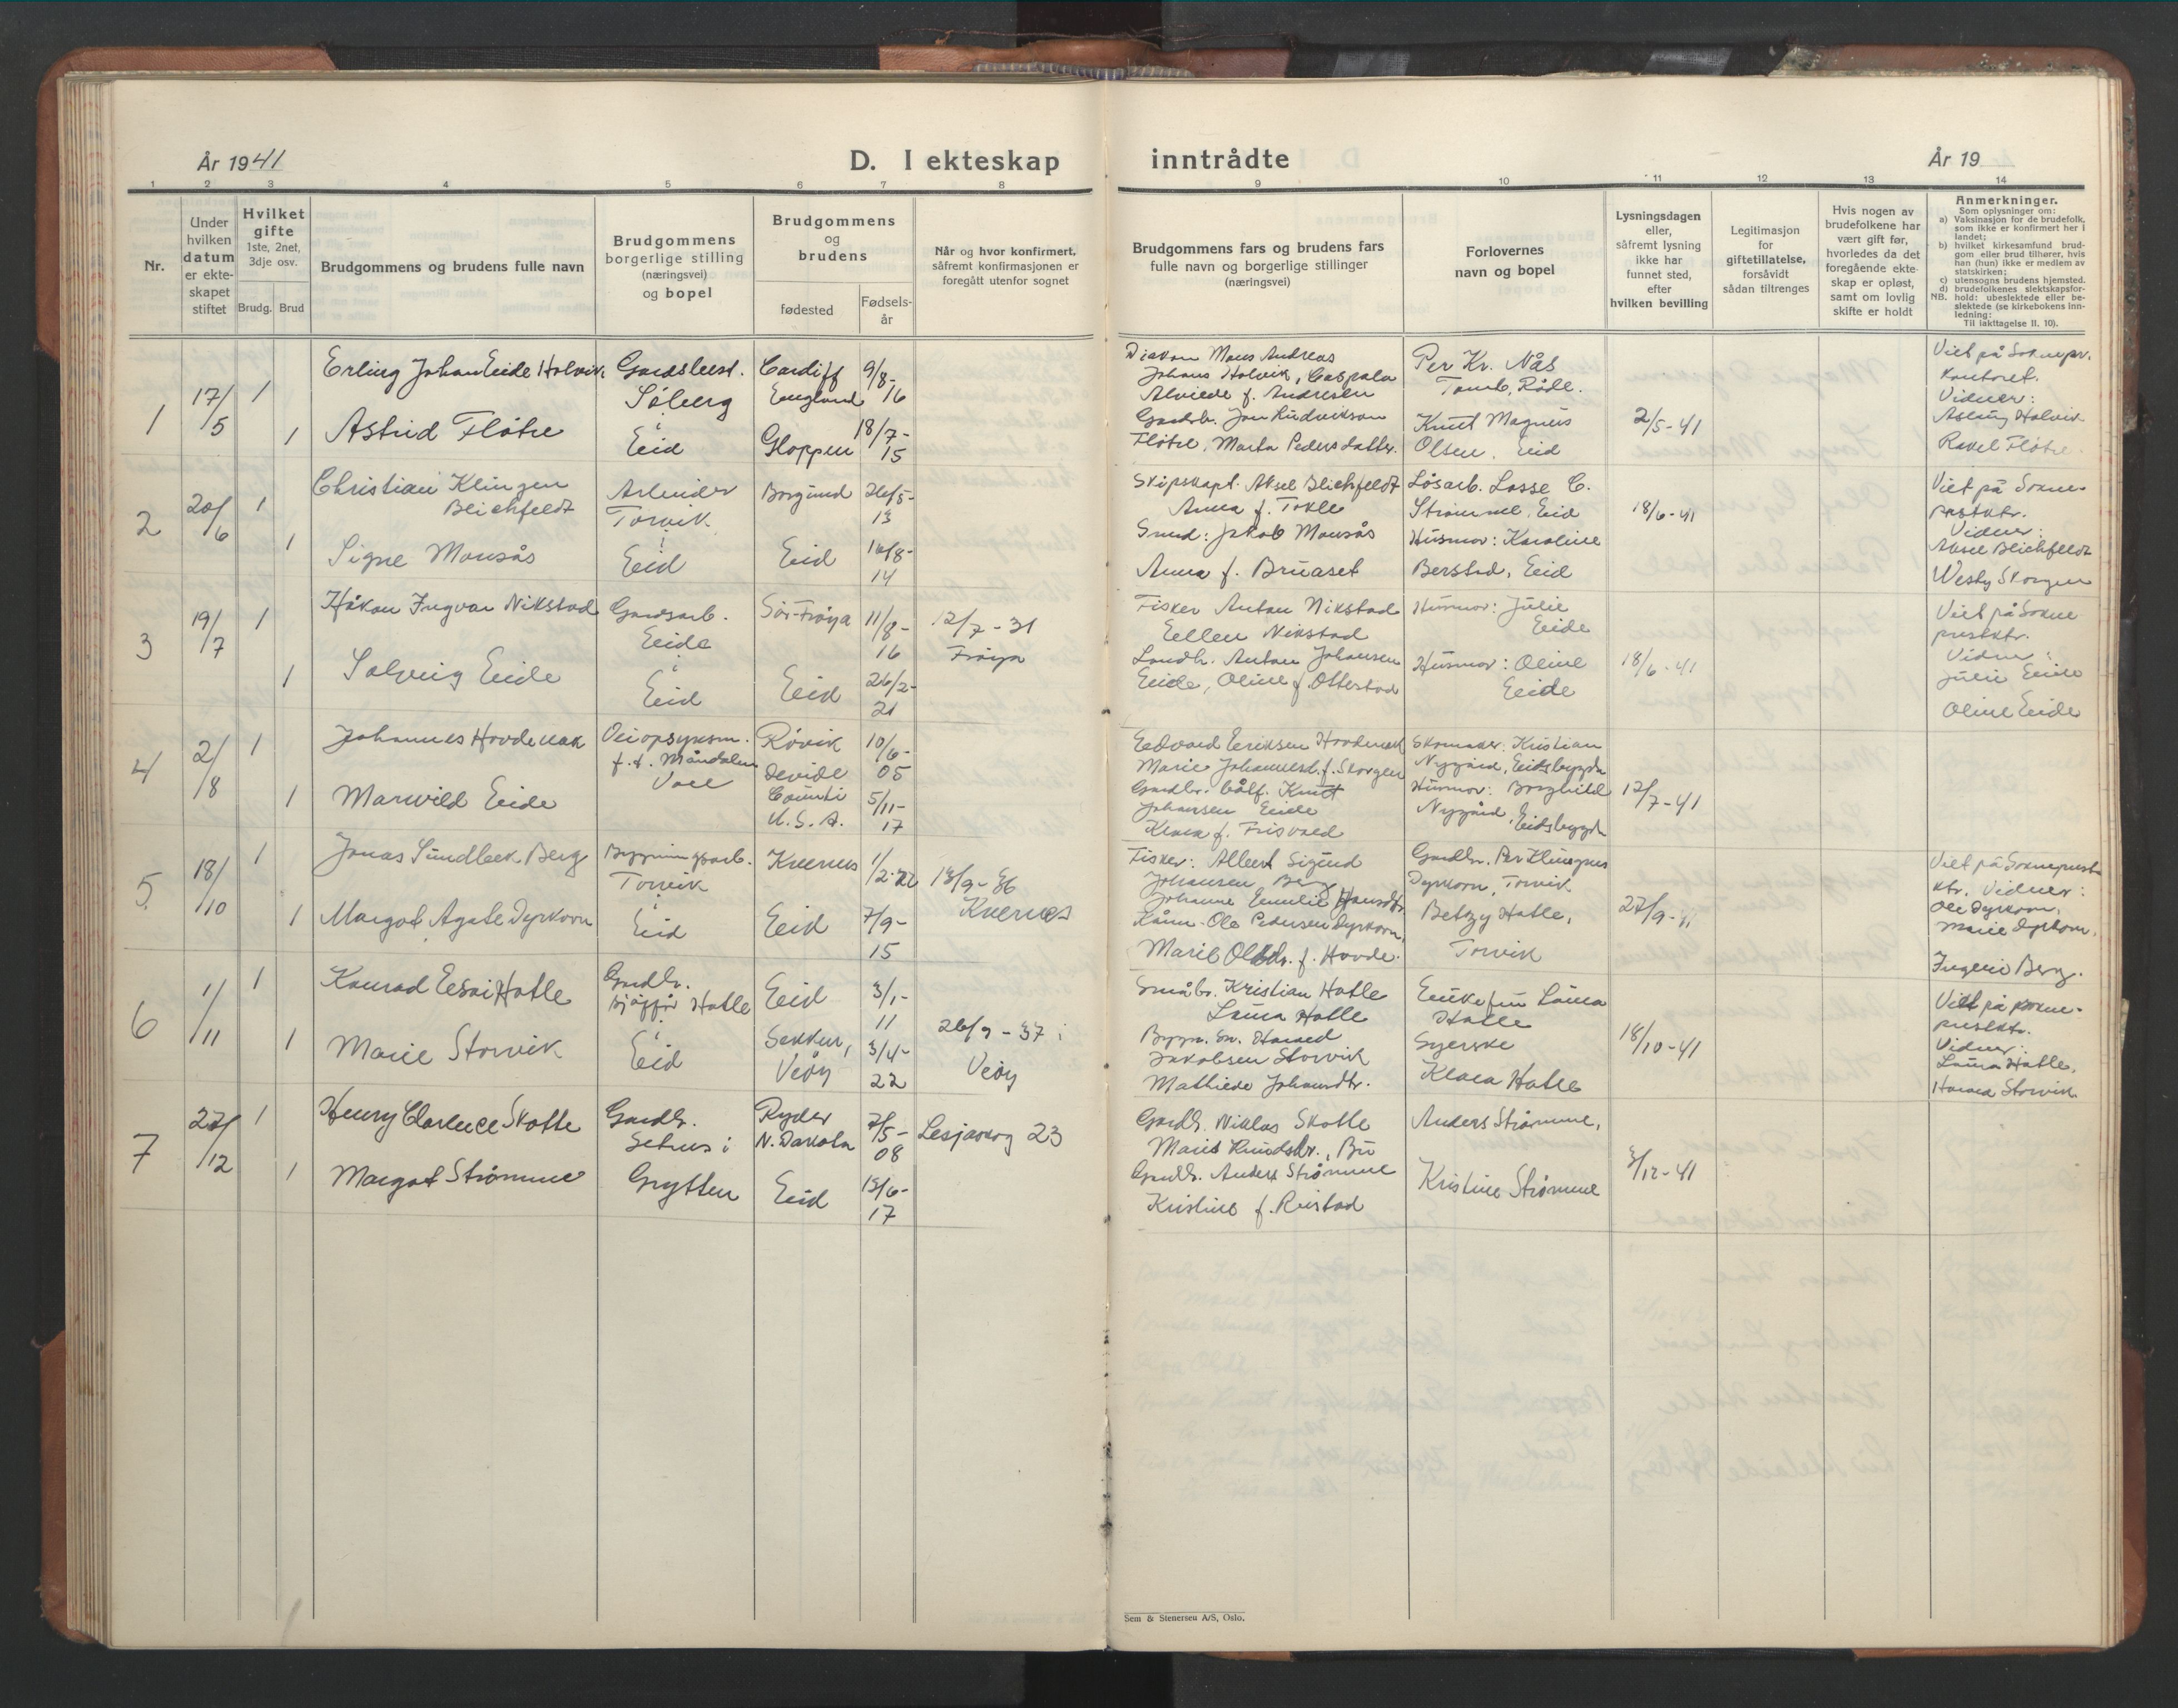 År 1941
D. I ekteskap
inntrådte
År 19
1 2 3 4 5 6 7 8
9 10 11 12 13 14
Nr.
Under
hvilken
datum
er ekte-
skapet
stiftet
Hvilket
gifte
1ste, 2net,
3dje osv.
Brudg. Brud
Brudgommens og brudens fulle navn
Brudgommens
borgerlige stilling
(næringsvei)
og bopel
Brudgommens
og
brudens
fødested
Fødsels-
år
Når og hvor konfirmert,
såfremt konfirmasjonen er
foregått utenfor sognet
Brudgommens fars og brudens fars
fulle navn og borgerlige stillinger
(næringsvei)
Forlovernes
navn og bopel
Lysningsdagen
eller,
såfremt lysning
ikke har
funnet sted,
efter
hvilken bevilling
Legitimasjon
for
giftetillatelse,
forsåvidt
sådan tiltrenges
Hvis nogen av
brudefolkene har
vært gift før,
hvorledes da det
foregående ekte-
skap er opløst,
samt om lovlig
skifte er holdt
Anmerkninger.
Som oplysninger om:
a) Vaksinasjon for de brudefolk,
som ikke er konfirmert her i
landet;
b) hvilket kirkesamfund brud-
gom eller brud tilhører, hvis
han (hun) ikke er medlem av
statskirken;
c) utensogns brudens hjemsted.
d) brudefolkenes slektskapsfor-
NB. hold: ubeslektede eller be-
slektede (se kirkebokens inn-
ledning:
Til iakttagelse II. 10).
1
17/5
1
1
Erling Johan Eide Holvik
Astrid Fløtre
Søberg
i
Eid
Cardiff
England
Gloppen
9/8-
16
18/7-
15
Diakon Mons Andreas
Johans Holvik,
f. Andresen
Gardbr. Jon Ludvikson
Fløtre, Marta Pedersdatter.
Per Kr. Nås
Tomb, Råde.
Knut Magnus
Olsen, Eid
2/5-41
Viet på Soknepr.
kontoret.
Vidner:
Aslaug Holvik
Rakel Fløtre.
2
20/6
1
1
Christian Klingen
Blichfeldt
Signe Monsås
Arbeider
Torvik
i
Eid
Borgund
Eid
26/5-
13
16/8-
14
Skipskapt. Aksel Blichfeldt
Anna f. Tokle
Smed: Jakob Monsås
Anna f. Bruaset
Løsarb. Lasse C.
Strømme, Eid
Husmor: Karoline
Berstad, Eid
18/6-41
Viet på Sokne-
prestktr.
Vidner:
Aksel Blichfeldt
Westy Skorgen
3
19/7
1
1
Håkon Ingvar Nikstad
Solveig Eide
Gardsarb.
Eide
i
Eid
Sør-Frøya
Eid
11/8-
16
26/2-
21
12/7-31
Frøya
Fisker Anton Nikstad
Ellen Nikstad
Landh. Anton Johansen
Eide, Oline f. Ottestad
Husmor: Julie
Eide
Husmor: Oline
Eide
18/6-41
Viet på Sokne
prestktr.
Vidner:
Julie Eide
Oline Eide
4
2/8
1
1
Johannes Hovdenak
Marvild Eide
Veiopsynsm.
f. t. Måndalen
Voll
Røvik
Devide
Counti
U.S.A.
10/6-
05
5/11-
17
Edvard Eriksen Hovdenak
Marie Johannesd. f. Skorgen
Gardbr. Knut
Johansen Eide
Klara f. Frisvold
Skomaker: Kristian
Nygård, Eidsbygda
Husmor: Borghild
Nygård, Eidsbygda
12/7-41
5.
18/10
1
1
Jonas Sundbeck Berg
Margot Agate Dyrkorn
Bygningsarb.
Torvik
i
Eid
Kvernes
Eid
1/2-22
7/9-
15
13/9-36
Kvernes
Fisker: Albert Sigurd
Johansen Berg
Johanne Emilie Hansdtr.
Ole Pedersen Dyrkorn,
Marie Olsdtr. f. Hovde.
Gardbr. Per
Dyrkorn, Torvik
Betzy Hatle,
Torvik
27/9-41
Viet på Sokneprest-
ktr. Vidner:
Ole Dyrkorn,
Marie Dyrkorn,
Ingerid Berg.
6
1/11
1
1
Konrad Esai Hatle
Marie Storvik
Gardbr.
Hatle
i
Eid
Eid
Sekken,
Veøy
3/1-
11
3/4-
22
26/9-37 i
Veøy
Småbr. Kristian Hatle
Laura Hatle
Bygn. sn. Harald
Jakobsen Storvik
Mathilde Johansdtr.
Enkefru Laura
Hatle
Syerske
Klara Hatle
18/10-41
Viet på sokne-
prestktr.
Vidner:
Laura Hatle,
Harald Storvik.
7
27/12
1
1
Henry Clarence Skotte
Margot Strømme
Gardbr.
Setnes i
Grytten
Ryder
N. Dakota
Eid
7/5-
08
13/6-
17
Lesjaskog 23
Gardb. Niklas Skotte
Marit Knudsdtr., Bu
Gardb. Anders Strømme
Kristine f. Reistad
Anders Strømme,
Kristine Strømme
3/12-41
Sem & Stenersen A/S, Oslo.